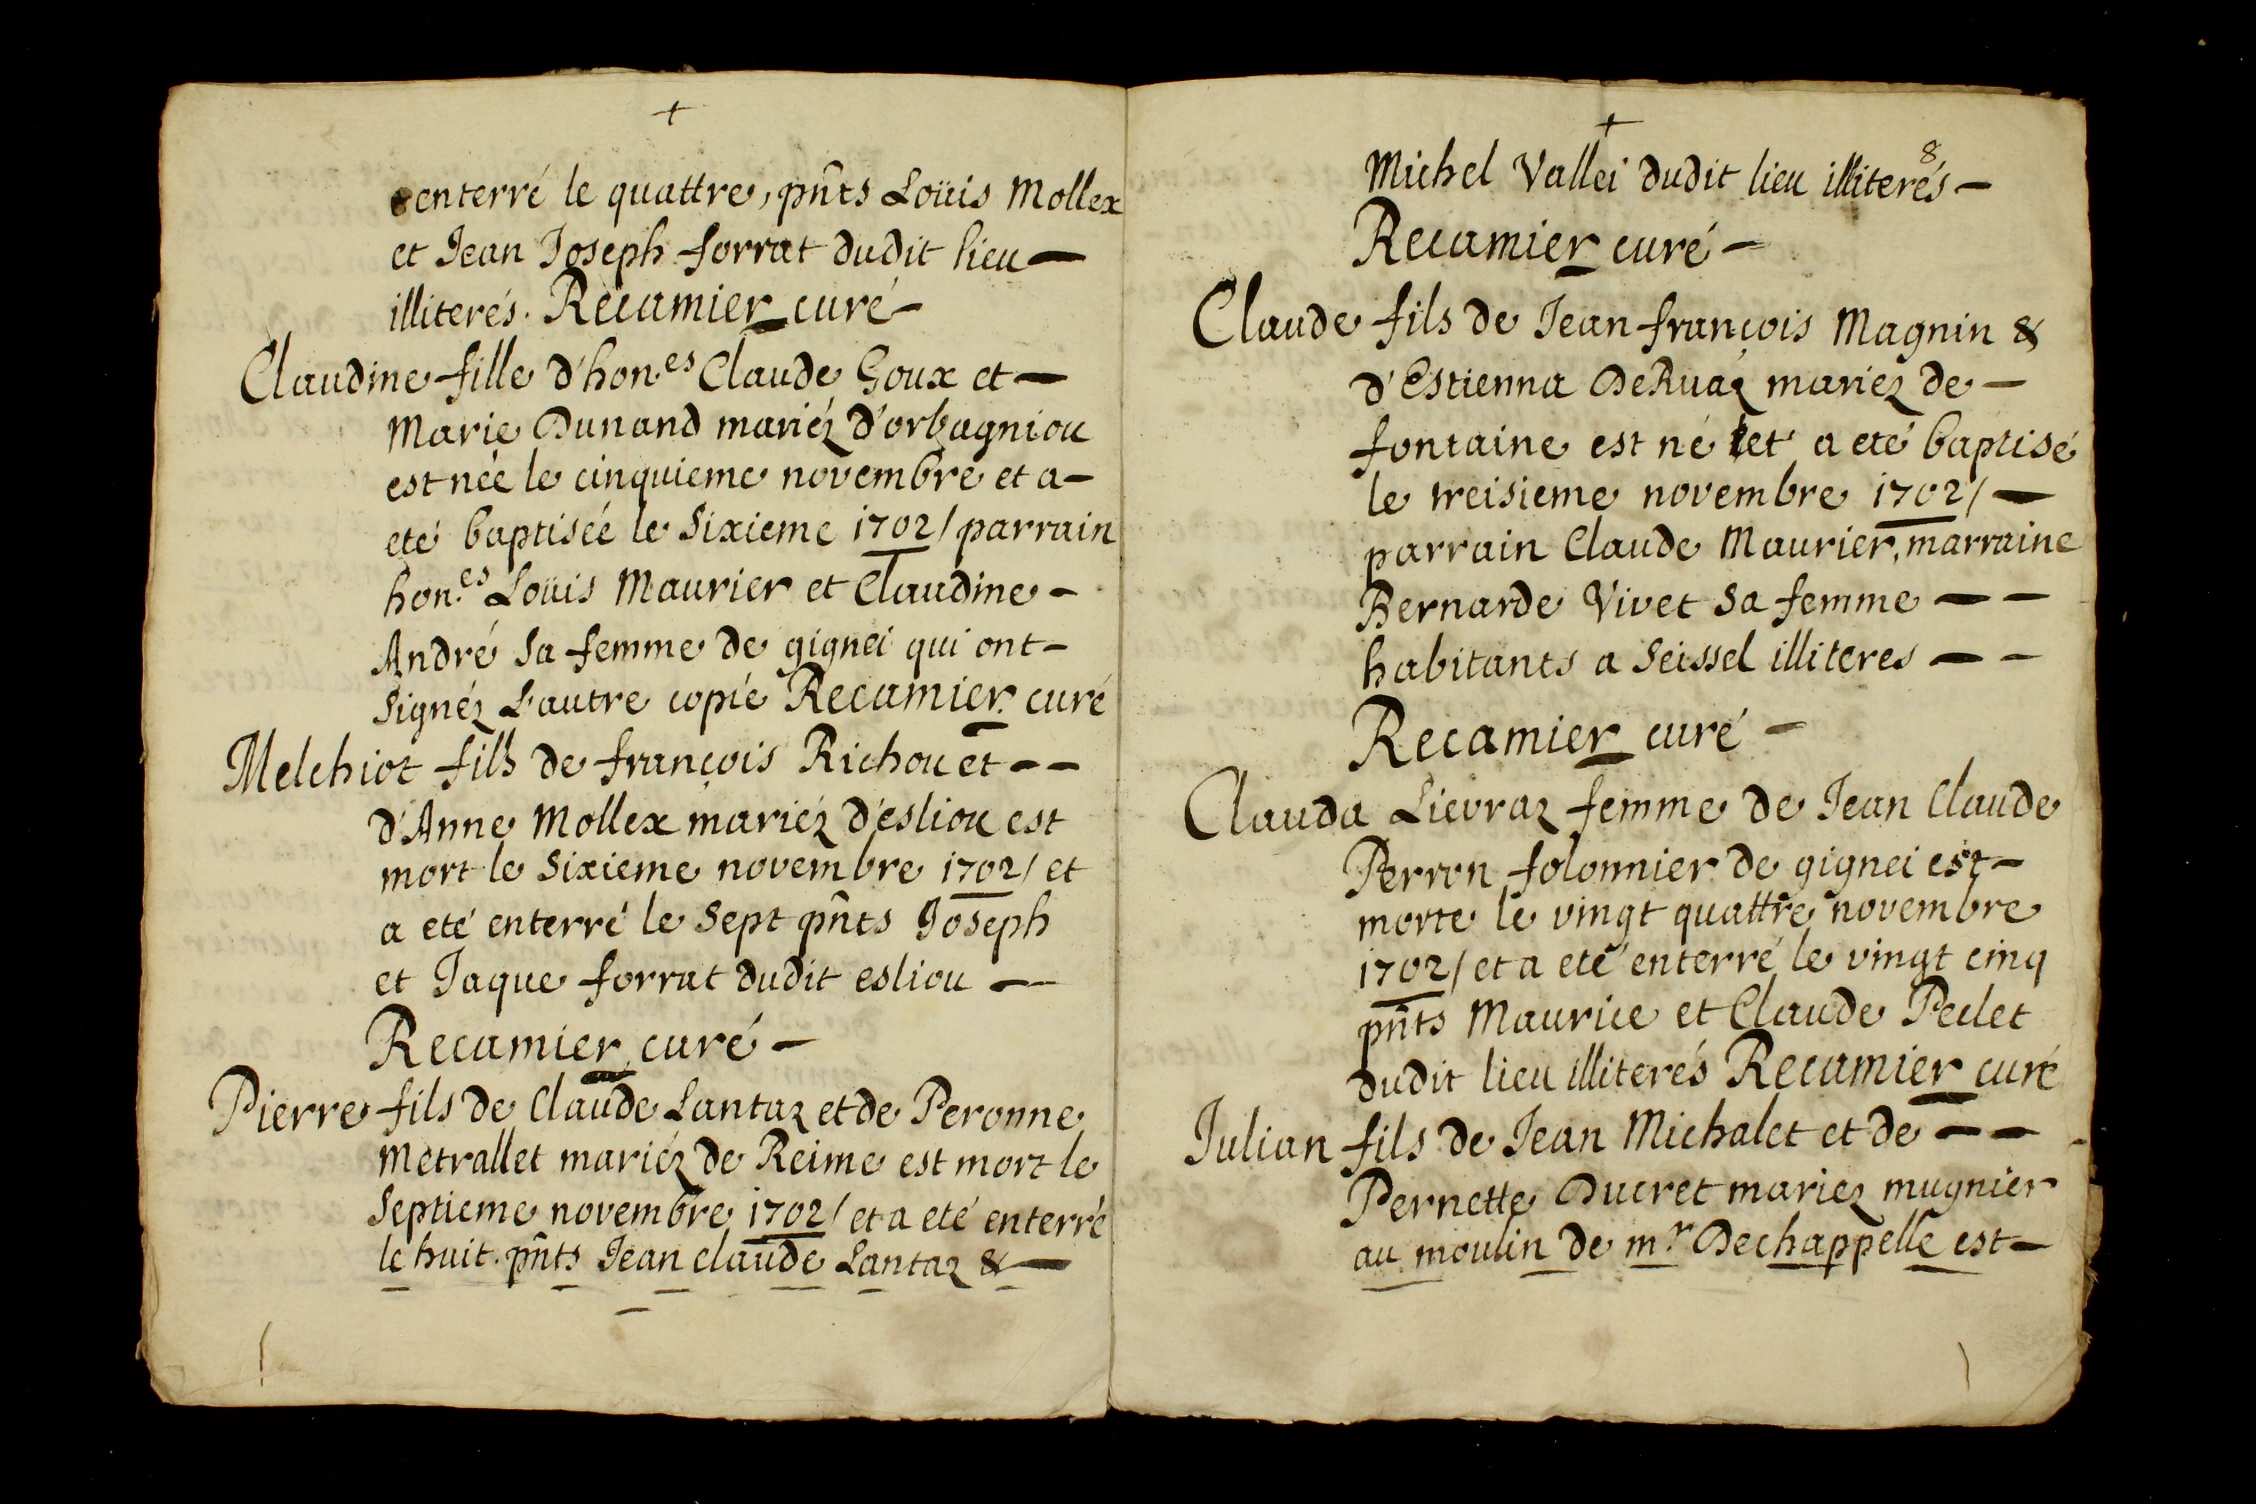 +
enterré le quattre, pñts Loüis Mollex
et Jean Joseph forrat dudit lieu —
illiterés. Recamier curé —
Claudine fille d'hon.es Claude Goux et —
Marie Dunand mariéz d'orbagniou
est née le cinquieme novembre et a —
eté baptiséé le Sixieme 1702/ parrain
hon.es Loüis Maurier et Claudine —
André Sa femme de gignei qui ont —
Signéz L'autre copie Recamier curé
Melchiot fils de françois Richou et — —
d'Anne Mollex mariéz d'esliou est
mort le Sixieme novembre 1702/ et
a eté enterré le Sept pñts Joseph
et Jaque forrat dudit esliou —
Recamier curé —
Pierre fils de Claude Lantaz et de Peronne
Metrallet mariéz de Reime est mort le
Septieme novembre 1702/ et a eté enterré
le huit. pñts Jean claude Lantaz & —
+
8
Michel Vallei dudit lieu illiterés —
Recamier curé —
Claude fils de Jean françois Magnin &
d'Estienna DeRuaz mariez de —
fontaine est né et a eté baptisé
le treisieme novembre 1702/ —
parrain Claude Maurier, marraine
Bernarde Vivet Sa femme — —
habitants a Seissel illiteres — —
Recamier curé —
Clauda Lievraz femme de Jean Claude
Perron folonnier de gignei est —
morte le vingt quattre novembre
1702/ et a eté enterré le vingt cinq
pñts Maurice et Claude Peclet
dudit lieu illiterés Recamier curé
Julian fils de Jean Michalet et de — —
Pernette Ducret mariez mugnier
au moulin de m.r Dechappelle est —